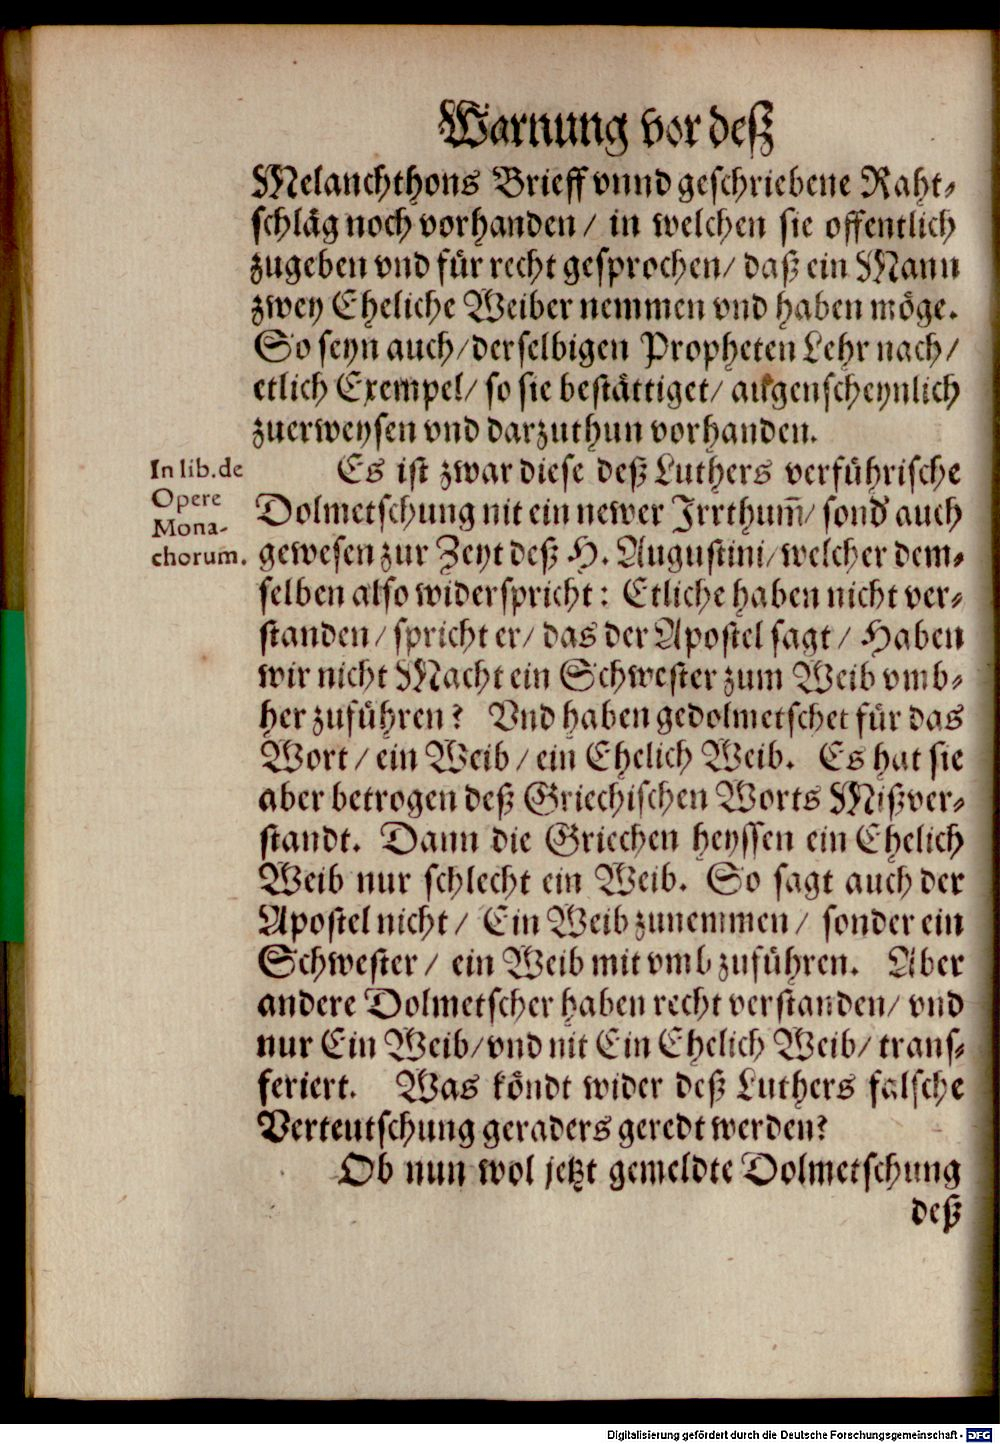 Warnung vor deß
Melanchthons Brieff vnnd geschriebene Raht-
schläg noch vorhanden / in welchen sie offentlich
zugeben vnd für recht gesprochen / daß ein Mann
zwey Eheliche Weiber nemmen vnd haben möge.
So seyn auch / derselbigen Propheten Lehr nach /
etlich Exempel / so sie bestättiget / augenscheynlich
zuerweysen vnd darzuthun vorhanden.
Es ist zwar diese deß Luthers verführische
Dolmetschung nit ein newer Irrthum̃ / sond' auch
gewesen zur Zeyt deß H. Augustini / welcher dem-
selben also widerspricht: Etliche haben nicht ver-
standen / spricht er / das der Apostel sagt / Haben
wir nicht Macht ein Schwester zum Weib vmb-
her zuführen? Vnd haben gedolmetschet für das
Wort / ein Weib / ein Ehelich Weib. Es hat sie
aber betrogen deß Griechischen Worts Mißver-
standt. Dann die Griechen heyssen ein Ehelich
Weib nur schlecht ein Weib. So sagt auch der
Apostel nicht / Ein Weib zunemmen / sonder ein
Schwester / ein Weib mit vmb zuführen. Aber
andere Dolmetscher haben recht verstanden / vnd
nur Ein Weib / vnd nit Ein Ehelich Weib / trans-
feriert. Was köndt wider deß Luthers falsche
Verteutschung geraders geredt werden?
Ob nun wol jetzt gemeldte Dolmetschung
deß
In lib. de
Opere
Mona-
chorum.
Digitalisierung gefördert durch die Deutsche Forschungsgemeinschaft - DFG